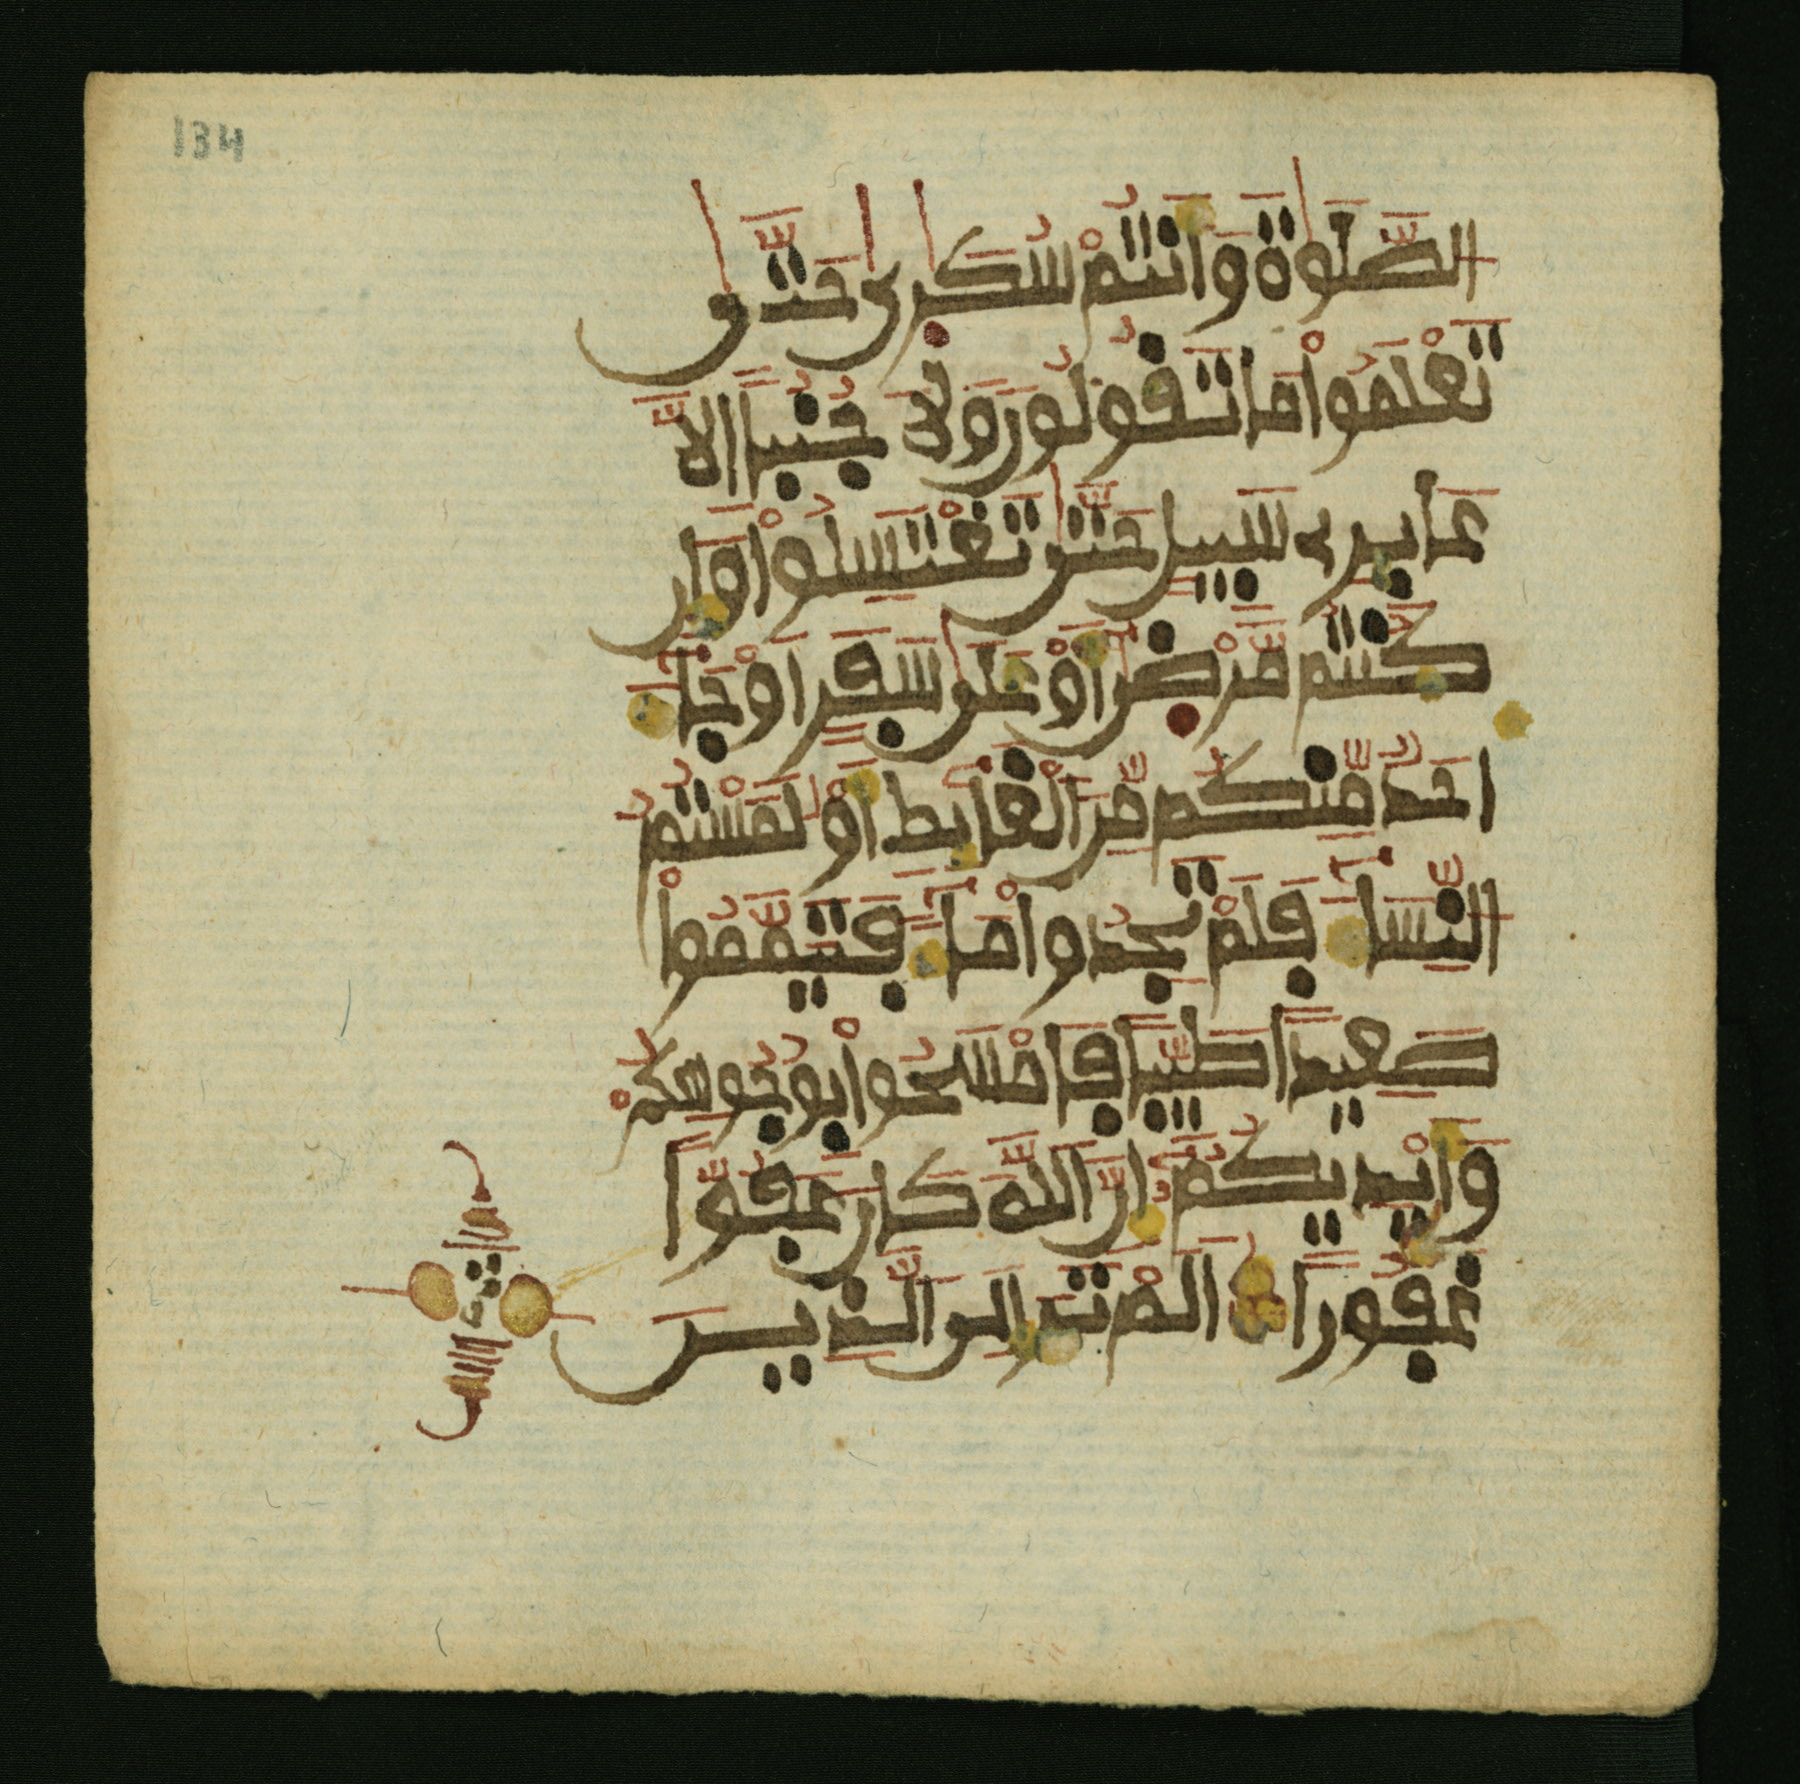 134
الصَّلَوٰةَ وَاَنتُمْ سُكَٰرىٰ حَتَّىٰ
تَعْلَمُواْ مَا تَقُولُونَ وَلَا جُنُبًا اِلَّا
عَابِرِى سَبِيلٍ حَتَّىٰ تَغْتَسِلُواْ وَاِن
كُنتُم مَّرْضىٰ اَوْ عَلَىٰ سَفَرٍ اَوْ جَآءَ
اَحَدٌ مِّنكُم مِّنَ الْغَآيِطِ اَوْ لَٰمَسْتُمُ
النِّسَآءَ فَلَمْ تَجِدُواْ مَآءً فَتَيَمَّمُواْ
صَعِيدًا طَيِّبًا فَامْسَحُواْ بِوُجُوهِكُمْ
وَاَيْدِيكُمُ إِنَّ اللَّهَ كَانَ عَفُوًّا
غَفُورًا اَلَمْ تَرَ اِلَى الَّذِينَ